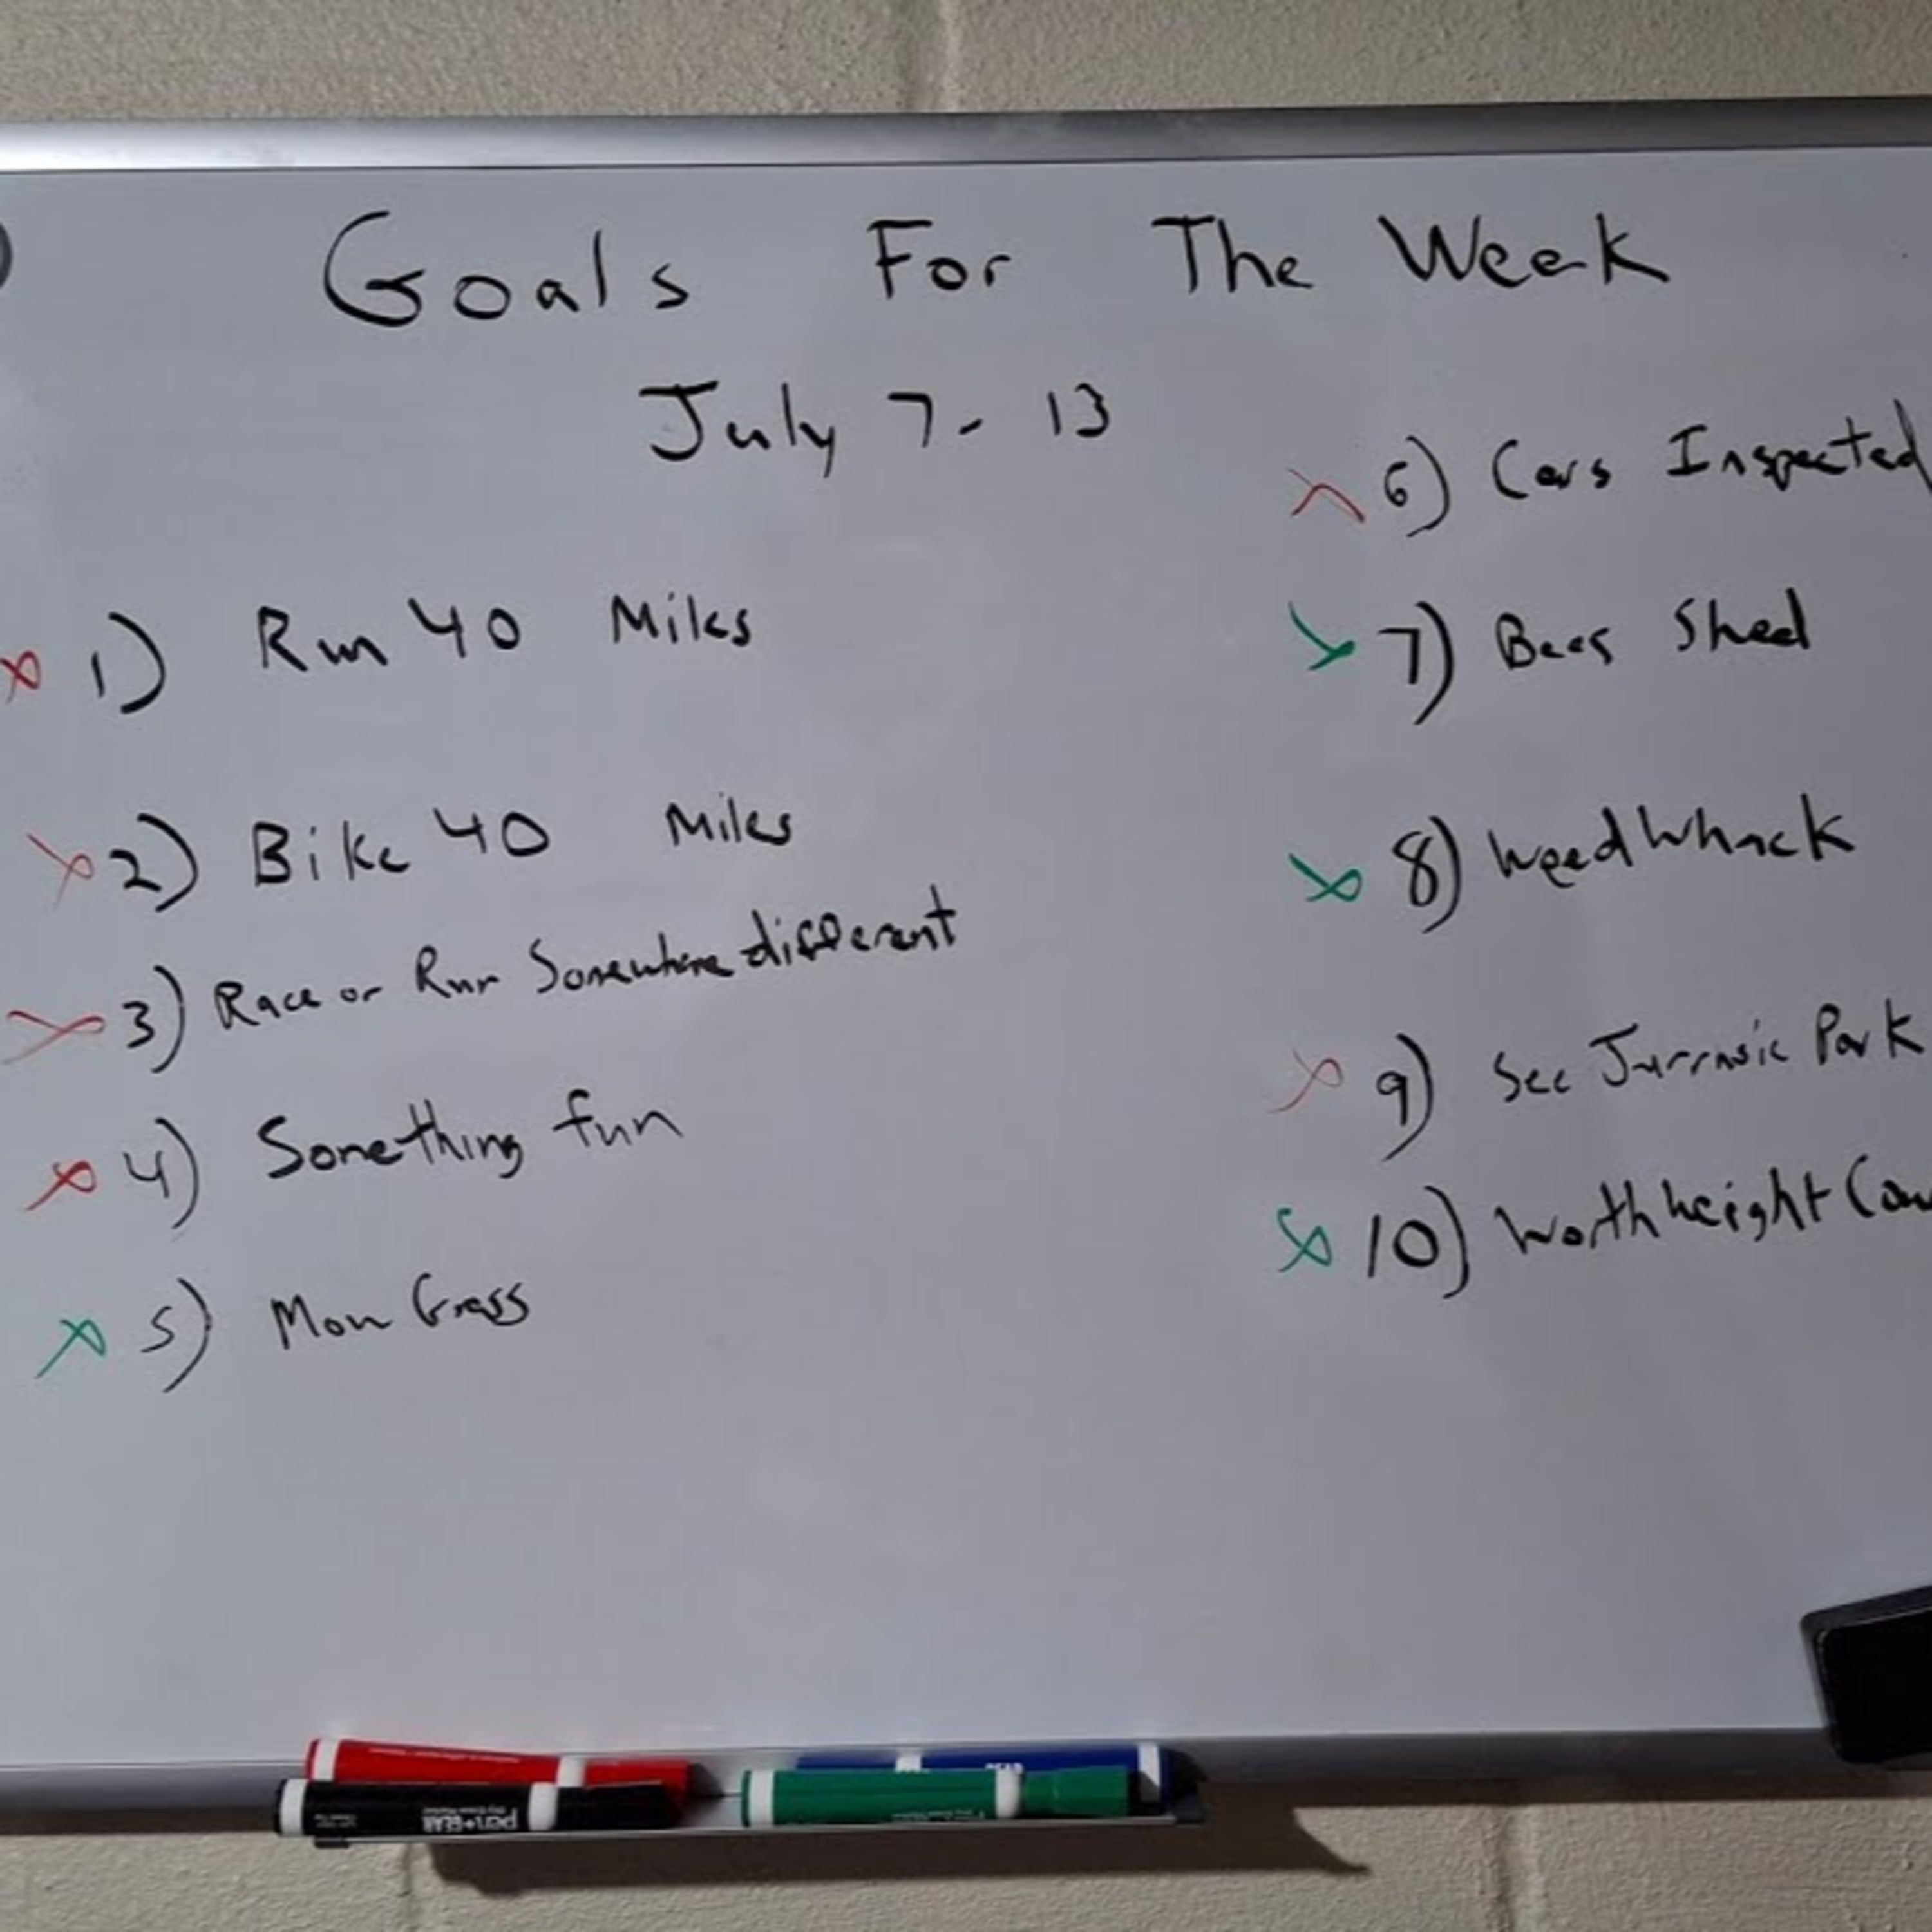 Goals For The Week
July 7- 13
1) Run 40 Miles
2) Bike 40 Miles
3) Race or Run Somewhere different
4) Something fun
5) Mow Grass
6) Cars Inspected
7) Bees Shed
8) Weedwhack
9) See Jurrasic Park
10) Worthheight
pen+GEAR